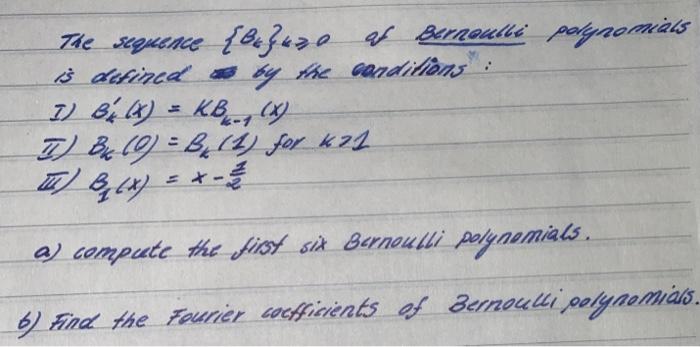 The sequence {Bₖ}ₖ≥₀ of Bernoulli polynomials
is defined by the conditions:
I) B'ₖ(x) = KBₖ₋₁(x)
II) Bₖ(0) = Bₖ(1) for k>1
III) B₁(x) = x - 1/2
a) compute the first six Bernoulli polynomials.
b) Find the Fourier coefficients of Bernoulli polynomials.